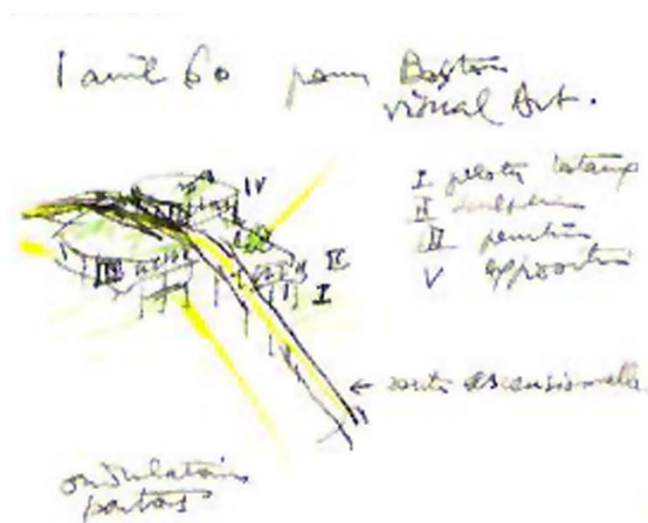 1 avril 60 pour Boston
visual Art.
IV
III
II
I
I pilotis
II sculpture
III peinture
V exposition
← route ascensionnelle
ondulatoires
partout